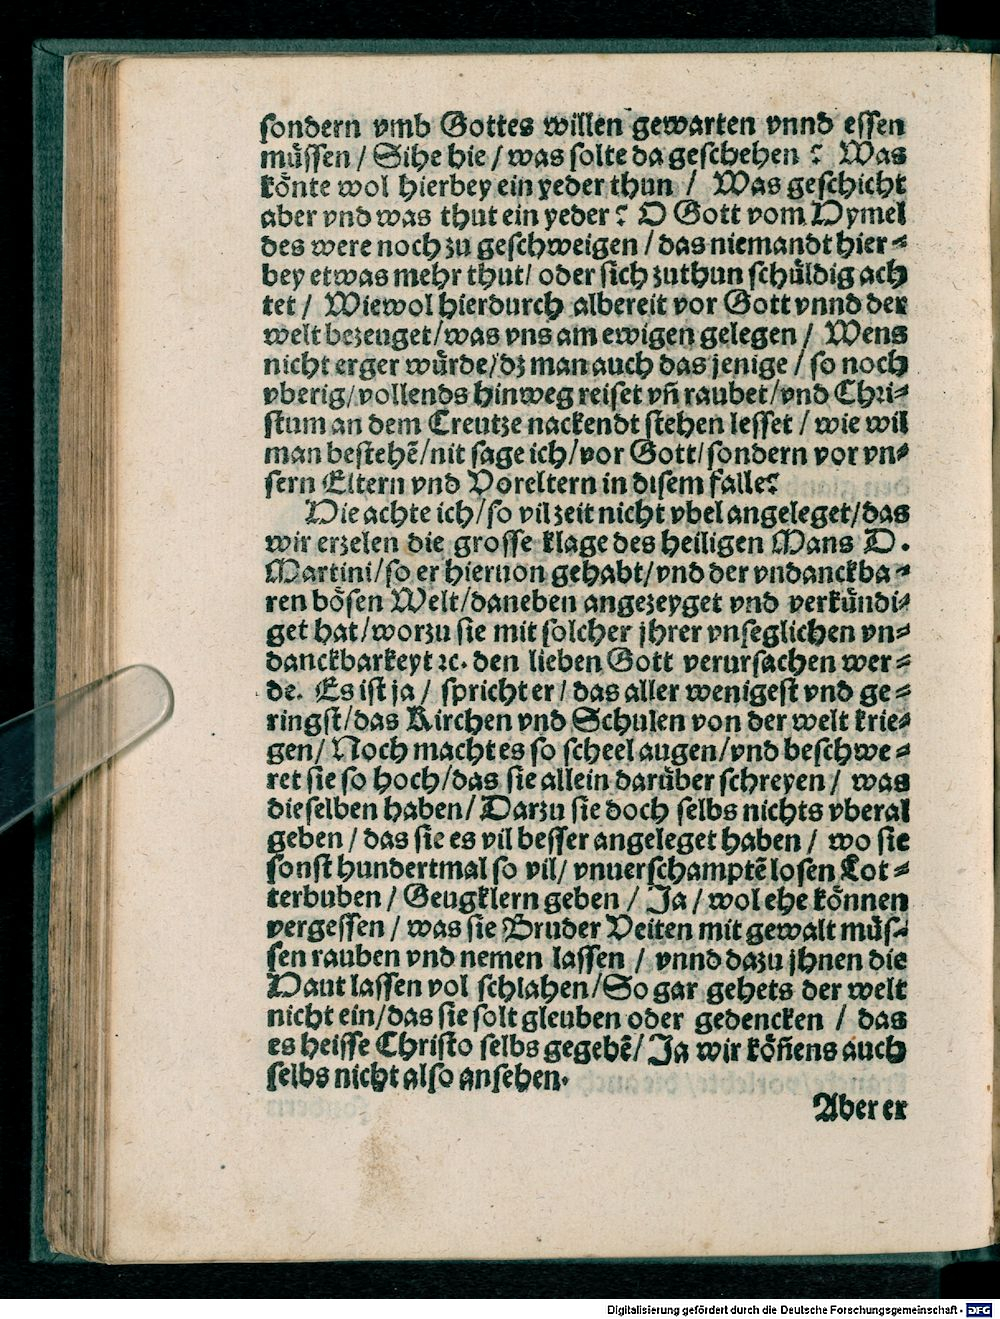 sondern vmb Gottes willen gewarten vnnd essen
müssen / Sihe hie / was solte da geschehen ? Was
könte wol hierbey ein yeder thun / Was geschicht
aber vnd was thut ein yeder ? O Gott vom Hymel
des were noch zu geschweigen / das niemandt hier⸗
bey etwas mehr thut / oder sich zuthun schüldig ach
tet / Wiewol hierdurch albereit vor Gott vnnd der
welt bezeuget / was vns am ewigen gelegen / Wens
nicht erger würde / dz man auch das jenige / so noch
vberig / vollends hinweg reiset vn̄ raubet / vnd Chri⸗
stum an dem Creutze nackendt stehen lesset / wie wil
man bestehẽ / nit sage ich / vor Gott / sondern vor vn⸗
sern Eltern vnd Voreltern in disem falle?
Hie achte ich / so vil zeit nicht vbel angeleget / das
wir erzelen die grosse klage des heiligen Mans D.
Martini / so er hieruon gehabt / vnd der vndanckba⸗
ren bösen Welt / daneben angezeyget vnd verkündi⸗
get hat / worzu sie mit solcher jhrer vnseglichen vn⸗
danckbarkeyt ꝛc. den lieben Gott verursachen wer⸗
de. Es ist ja / spricht er / das aller wenigest vnd ge⸗
ringst / das Kirchen vnd Schulen von der welt krie⸗
gen / Noch macht es so scheel augen / vnd beschwe⸗
ret sie so hoch / das sie allein darüber schreyen / was
dieselben haben / Darzu sie doch selbs nichts vberal
geben / das sie es vil besser angeleget haben / wo sie
sonst hundertmal so vil / vnuerschamptẽ losen Lot⸗
terbuben / Geugklern geben / Ja / wol ehe können
vergessen / was sie Bruder Veiten mit gewalt müs⸗
sen rauben vnd nemen lassen / vnnd dazu jhnen die
Haut lassen vol schlahen / So gar gehets der welt
nicht ein / das sie solt gleuben oder gedencken / das
es heisse Christo selbs gegebẽ / Ja wir kön̄ens auch
selbs nicht also ansehen.
Aber er
Digitalisierung gefördert durch die Deutsche Forschungsgemeinschaft - DFG